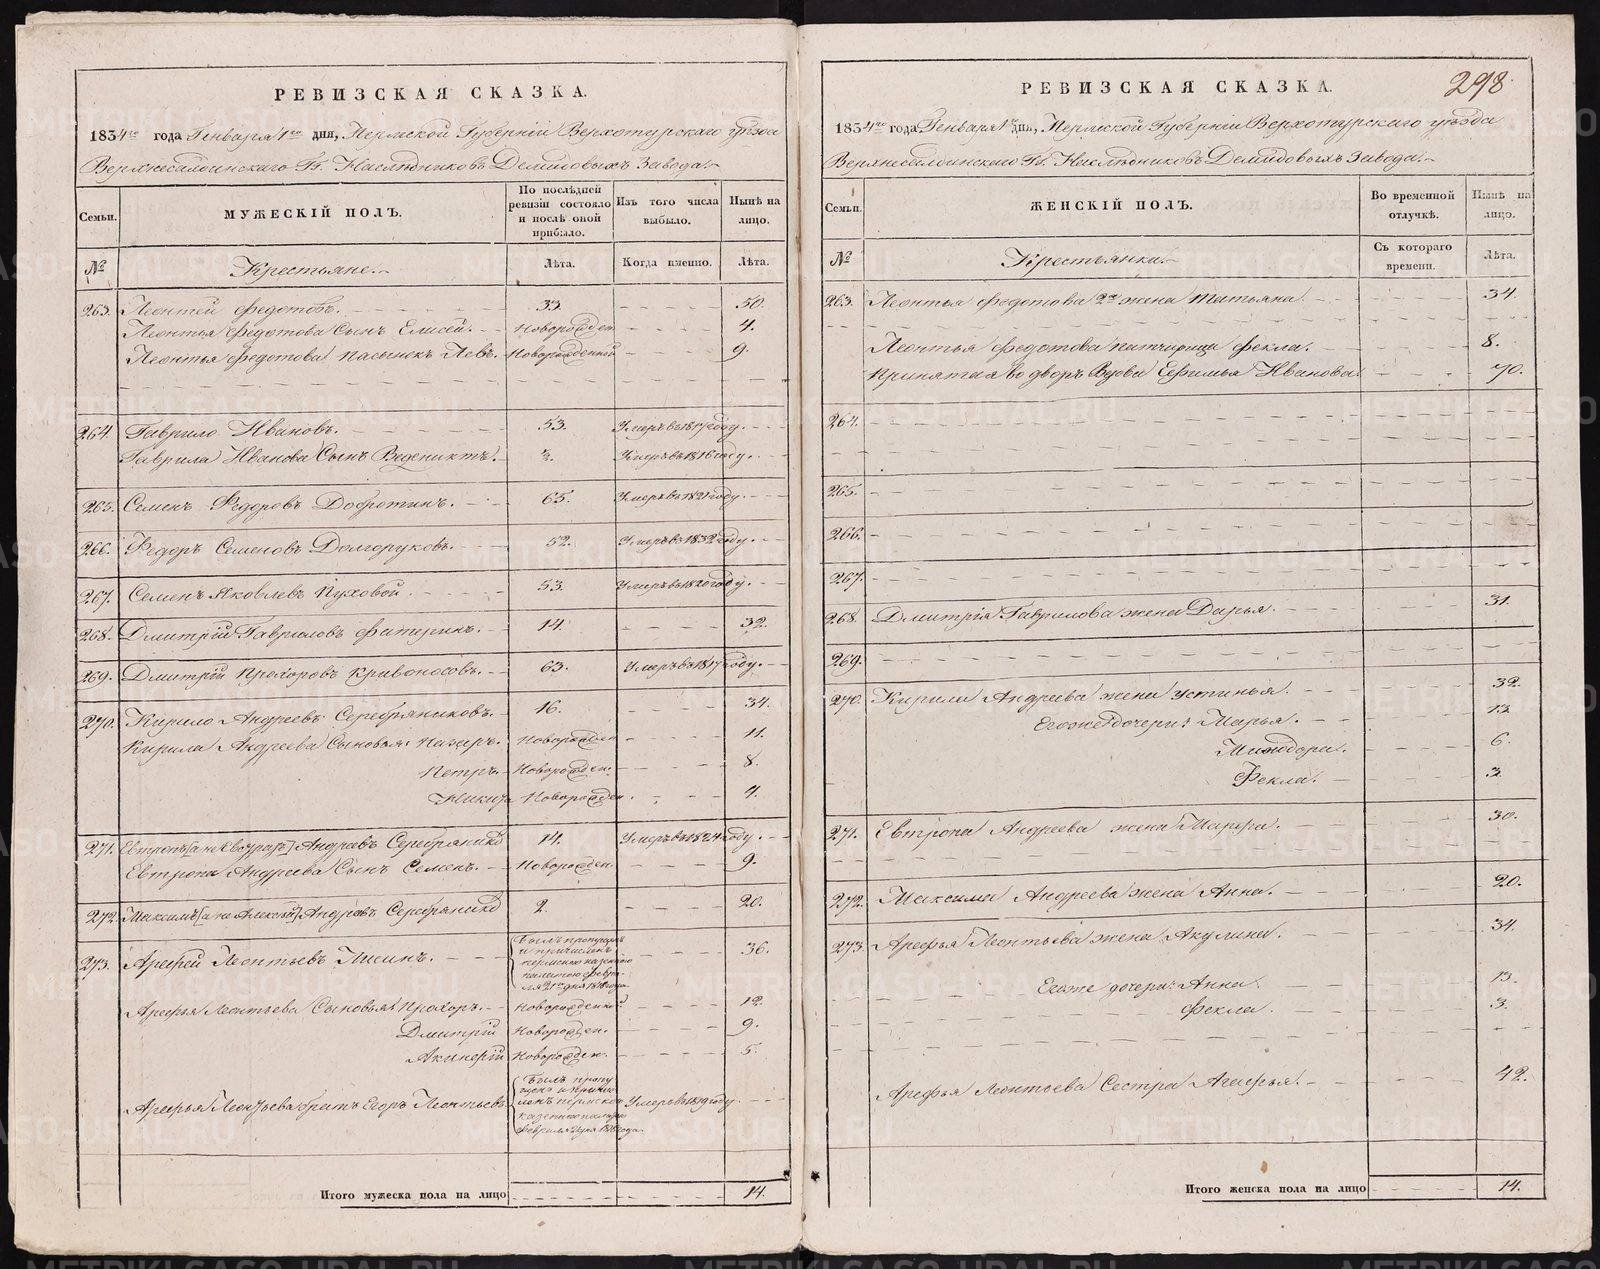 РЕВИЗСКАЯ СКАЗКА.
1834го года Генваря 1го дня, Пермской Губерніи Верхотурскаго уѣзда
Верхнесалдинскаго Гг. Наслѣдниковъ Демидовыхъ Завода.
Семьи. МУЖЕСКІЙ ПОЛЪ. По послѣдней ревизіи состояло и послѣ оной прибыло. Изъ того числа выбыло. Нынѣ на лицо.
№ Крестьяне. Лѣта. Когда именно. Лѣта.
263. Леонтей Федотовъ. 33. 50.
Леонтья Федотова Сынъ Елисей. Новорожден. 4.
Леонтья Федотова пасынокъ Левъ. Новорожденный 9.
264. Гаврило Ивановъ. 53. Умеръ въ 1817 году.
Гаврила Иванова Сынъ Веденихтъ. Умеръ въ 1816 году.
265. Семенъ Федоровъ Добротинъ. 65. Умеръ въ 1821 году.
266. Федоръ Семеновъ Долгоруковъ. 52. Умеръ въ 1832 году.
267. Семенъ Яковлевъ Пуховой. 53. Умеръ въ 1820 году.
268. Дмитрій Гавриловъ Фатеринъ. 14. 32.
269. Дмитрій Прохоровъ Кривоносовъ. 63. Умеръ въ 1817 году.
270. Кирило Андреевъ Серебряниковъ. 16. 34.
Кирила Андреева Сыновья: Назаръ. Новорожден 11.
Петръ. Новорожден. 8.
Никита Новорожден. 4.
271. Евтропъ [а не Евграфъ] Андреевъ Серебрянико 14. Умеръ въ 1824 году.
Евтропа Андреева Сынъ Семенъ. Новорожден. 9.
272. Максимъ [а не Алексей] Андреевъ Серебрянико 2. 20.
273. Арефей Леонтьевъ Лисинъ. Былъ пропущенъ и причисленъ пермскою казенною палатою Февраля 21го дня 1818 года 36.
Арефья Леонтьева Сыновья: Прохоръ. Новорожденной 12.
Дмитрій Новорожден. 9.
Акинфій Новорожден. 5.
Арефья Леонтьева братъ Егоръ Леонтьевъ Былъ пропущенъ и причисленъ пермскою казенною палатою Февраля 21 дня 1818 года. Умеръ въ 1819 году.
Итого мужеска пола на лицо 14.
298.
РЕВИЗСКАЯ СКАЗКА.
1834го года Генваря 1го дня, Пермской Губерніи Верхотурскаго уѣзда
Верхнесалдинскаго Гг. Наслѣдниковъ Демидовыхъ Завода.
Семьи. ЖЕНСКІЙ ПОЛЪ. Во временной отлучкѣ. Нынѣ на лицо.
№ Крестьянки. Съ котораго времени. Лѣта.
263. Леонтья Федотова 2я жена Татьяна. 34.
Леонтья Федотова патчирица Фекла. 8.
Принятая во дворъ Вдова Ефимья Иванова. 70.
264.
265.
266.
267.
268. Дмитрія Гаврилова жена Дарья. 31.
269.
270. Кирила Андреева жена Устинья. 32.
Егоже дочери: Марья. 13.
Минодора. 6.
Фекла. 3.
271. Евтропа Андреева жена Марфа. 30.
272. Максима Андреева жена Анна. 20.
273. Арефья Леонтьева жена Акулина. 34.
Егоже дочери: Анна. 13.
Фекла. 3.
Арефья Леонтьева Сестра Агафья. 42.
Итого женска пола на лицо 14.
METRIKI.GASO-URAL.RU